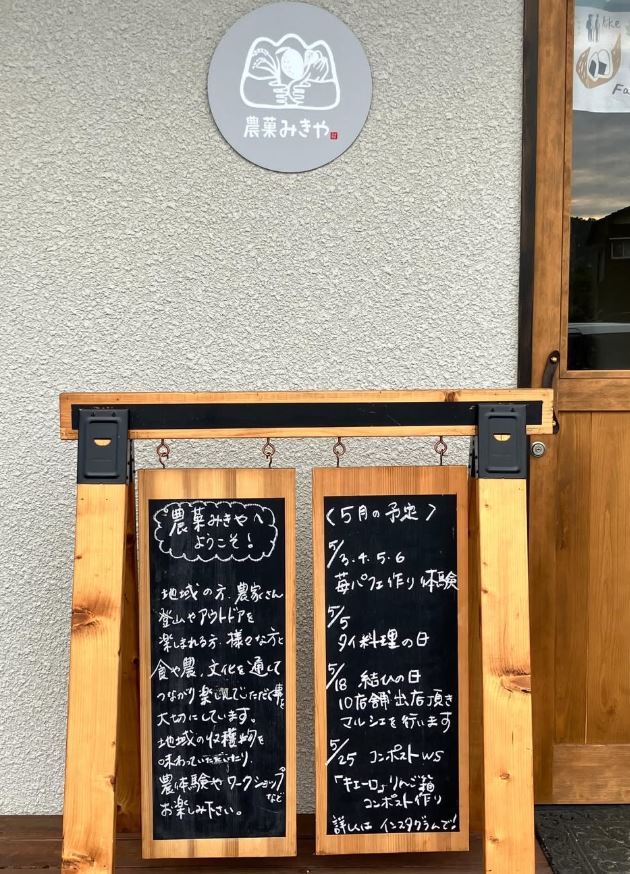 農菓みきや
ike
Fa
農菓みきやへ
ようこそ!
地域の方、農家さん
登山やアウトドアを
楽しまれる方、様々な方と
食や農、文化を通して
つながり楽しんでいただく事を
大切にしています。
地域の収穫物を
味わっていただいたり、
農体験やワークショップ
など
お楽しみ下さい。
〈5月の予定〉
5/3.4.5.6
苺パフェ作り体験
5/5
タイ料理の日
5/18 結びの日
10店舗出店頂き
マルシェを行います
5/25 コンポストWS
「キエーロ」りんご箱
コンポスト作り
詳しくはインスタグラムで!